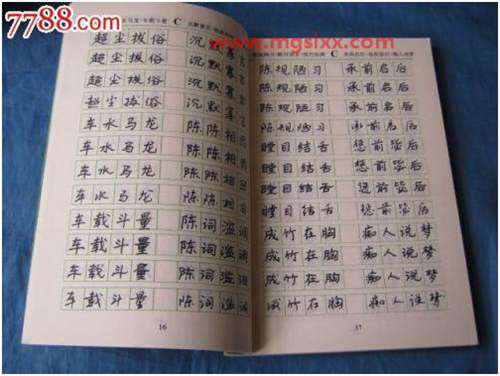 7788.com
www.mgslxx.com
C
超尘拔俗 沉默寡言
超尘拔俗 沉默寡言
超尘拔俗 沉默寡言
超尘拔俗 沉默寡言
车水马龙 陈陈相因
车水马龙 陈陈相因
车水马龙 陈陈相因
车水马龙 陈陈相因
车载斗量 陈词滥调
车载斗量 陈词滥调
车载斗量 陈词滥调
车载斗量 陈词滥调
16
C
陈规陋习 承前启后
陈规陋习 承前启后
陈规陋习 承前启后
陈规陋习 承前启后
瞠目结舌 惩前毖后
瞠目结舌 惩前毖后
瞠目结舌 惩前毖后
瞠目结舌 惩前毖后
成竹在胸 痴人说梦
成竹在胸 痴人说梦
成竹在胸 痴人说梦
成竹在胸 痴人说梦
17